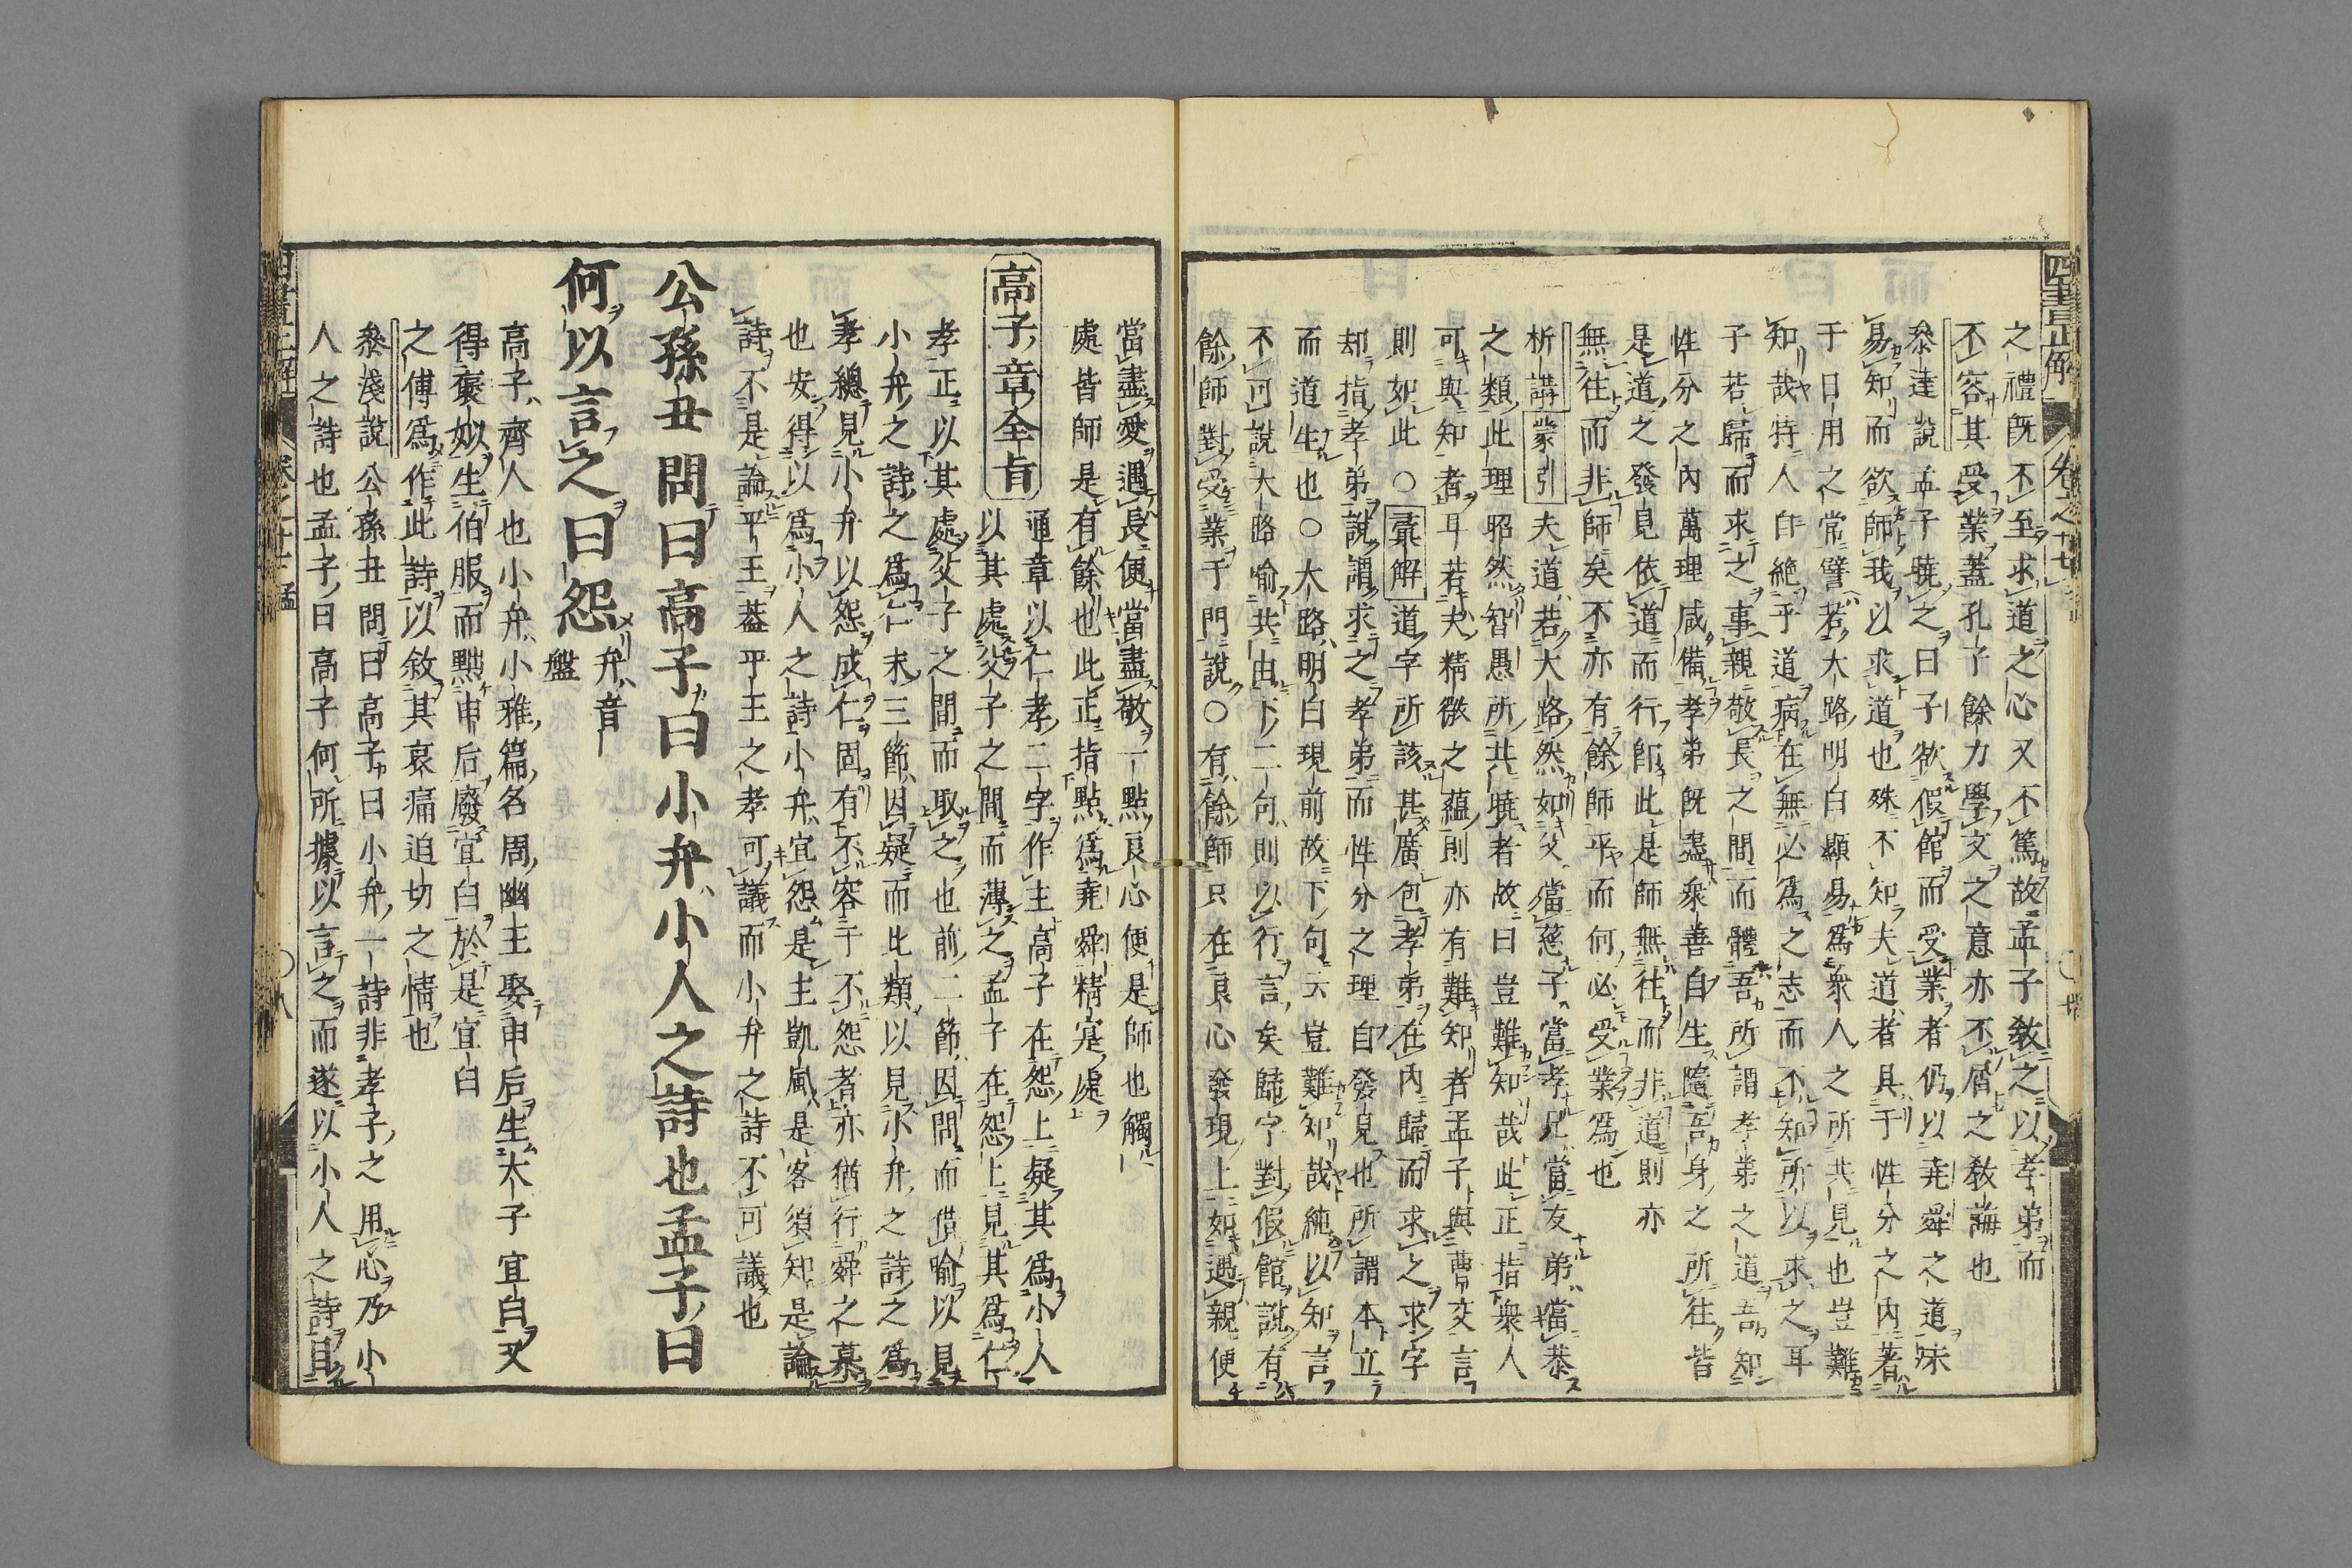 四書正解
卷之十七
之禮既不至求道之心又不篤故孟子教之以孝弟而
不容其受業蓋孔子餘力學文之意亦不屑之教誨也
叅達說孟子曉之曰子欲假館而受業者仍以堯舜之道未
易知而欲師我以求道也殊不知夫道者具于性分之內著
于日用之常譬若大路明白顯易爲衆人之所共見也豈難
知哉特人自絶乎道病在無必爲之志而不知所以求之耳
子若歸而求之事親敬長之間而體吾所謂孝弟之道吾知
性分之內萬理咸備孝弟既盡衆善自生隨吾身之所往皆
是道之發見依道而行即此是師無往而非道則亦
無往而非師矣不亦有餘師乎而何必受業爲也
析講蒙引夫道若大路然如父當慈子當孝兄當友弟當恭
之類此理昭然智愚所共曉者故曰豈難知哉此正指衆人
可與知者耳若夫精微之蘊則亦有難知者孟子與曹交言
則如此○彚解道字所該甚廣包孝弟在內歸而求之求字
却指孝弟說謂求之孝弟而性分之理自發見也所謂本立
而道生也○大路明白現前故下句云豈難知哉純以知言
不可說大路喻共由下二句則以行言矣歸字對假館說有
餘師對受業于門說○有餘師只在良心發現上如遇親便
當盡愛遇長便當盡敬一點良心便是師也觸
處皆師是有餘也此正指點爲堯舜精寔處
高子章全旨
通章以仁孝二字作主高子在怨上疑其爲小人
以其處父子之間而薄之孟子在怨上見其爲仁
孝正以其處父子之間而取之也前二節因問而借喻以見
小弁之詩之爲仁末三節因疑而比類以見小弁之詩之爲
孝總見小弁以怨成仁固有不容于不怨者亦猶行舜之慕
也安得以爲小人之詩小弁宜怨是主凱風是客須知是論
詩不是論平王葢平王之孝可議而小弁之詩不可議也
公孫丑問曰高子曰小弁小人之詩也孟子曰
何以言之曰怨
弁音
盤
高子齊人也小弁小雅篇名周幽王娶申后生太子宜臼又
得褒姒生伯服而黜申后廢宜臼於是宜臼
之傅爲作此詩以敘其哀痛迫切之情也
叅淺說公孫丑問曰高子曰小弁一詩非孝子之用心乃小
人之詩也孟子曰高子何所據以言之而遂以小人之詩目